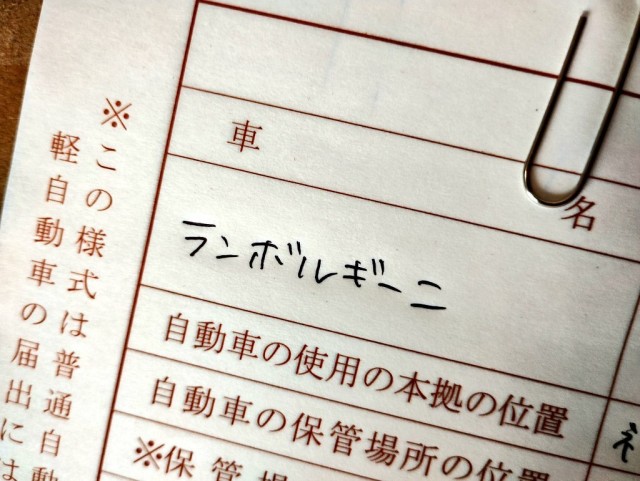 車名
ランボルギーニ
自動車の使用の本拠の位置
自動車の保管場所の位置
※保管場
※この様式は普通自動
軽自動車の届出には